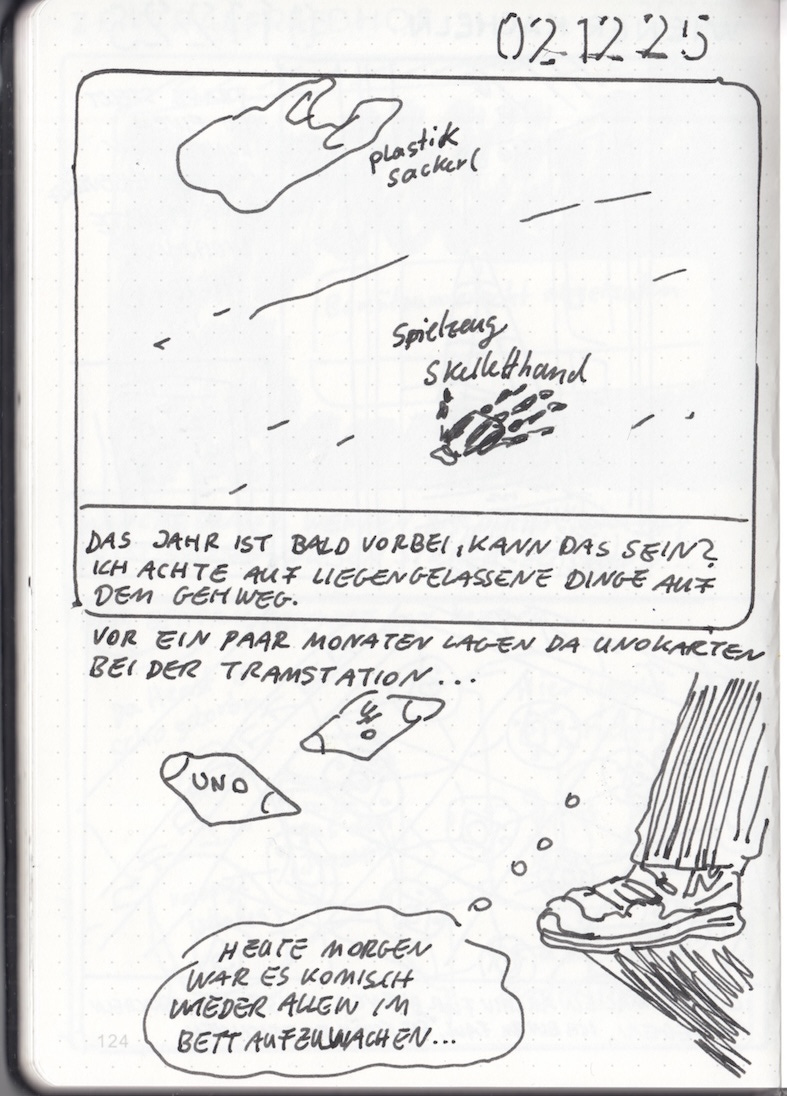 021225
plastik
sackerl
Spielzeug
Skeletthand
DAS JAHR IST BALD VORBEI, KANN DAS SEIN?
ICH ACHTE AUF LIEGENGELASSENE DINGE AUF
DEM GEHWEG.
VOR EIN PAAR MONATEN LAGEN DA UNOKARTEN
BEI DER TRAMSTATION...
UNO
HEUTE MORGEN
WAR ES KOMISCH
WIEDER ALLEIN IM
BETT AUFZUWACHEN...
124